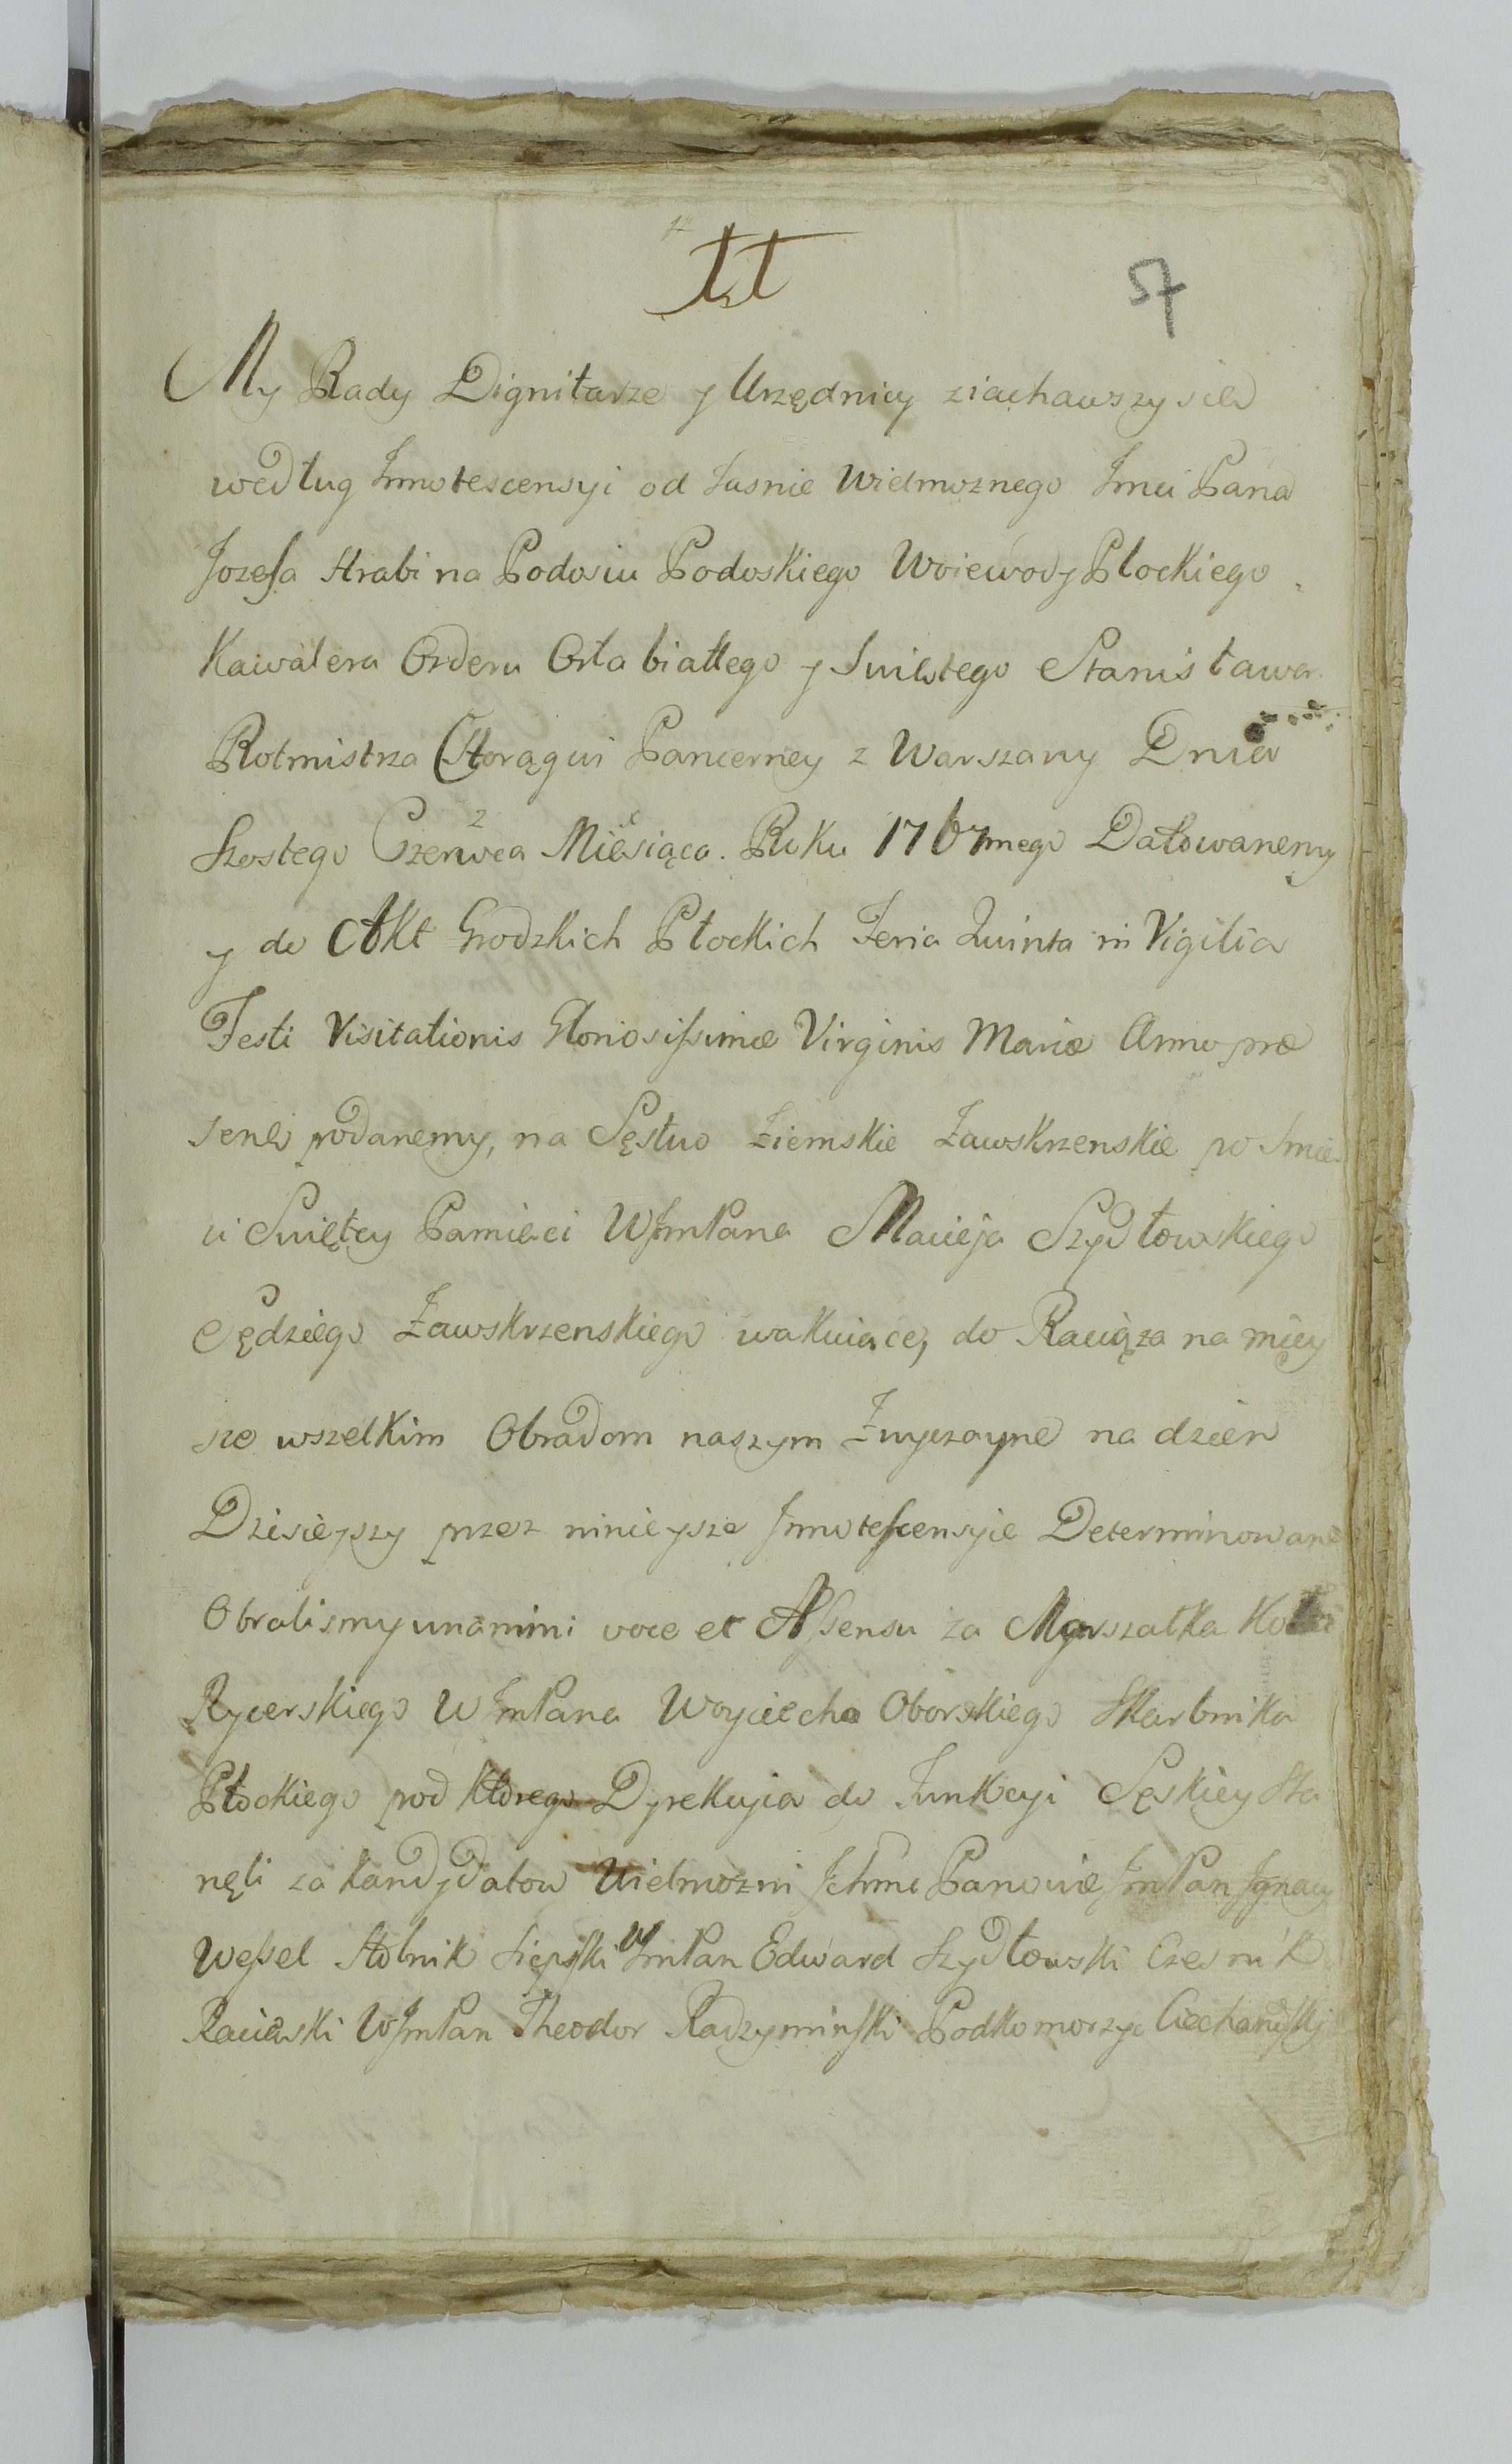 57
My Rady Dignitarze y Urzędnicy ziachawszy sie
według Innotescensyi od Jasnie Wielmoznego Jmci Pana
Jozefa Hrabi na Podosiu Podoskiego Woiewody Płockiego
Kawalera Orderu Orła białłego y Swiętego Stanisława
Rotmistrza Chorągwi Pancerney z Warszawy Dnia
Szostego Czerwca Miesiąca. Roku 1767mego Datowanemy
y do Akt Grodzkich Płockich Feria Quinta in Vigilia
Festi Visitationis Gloriosissimæ Virginis Mariæ Anno præ
sente podanemy, na Sęstwo Ziemskie Zawskrzenskie po Smier
ci Swiętey Pamieci WJmPana Macieja Szydłowskiego
Sędziego Zawskrzenskiego wakuiące, do Raciąża na miey
sce wszelkim Obradom naszym Zwyczayne na dzien
Dzisieyszy przez ninieysze Innotescensyie Determinowane
Obralismy unanimi voce et Assensu za Marszałka Koła
Rycerskiego WJmPana Woyciecha Oborskiego Skarbnika
Płockiego pod ktorego Dyrekcyia do Funkcyi Sęskiey Sta
nęli za kandydatow Wielmozni Ichmc Panowie JmPan Ignacy
Wessel Stolnik Sierpski WJmPan Edward Szydłowski Czesnik
Raciaski WJmPan Theodor Radzyminski Podkomorzyc Ciechanowski